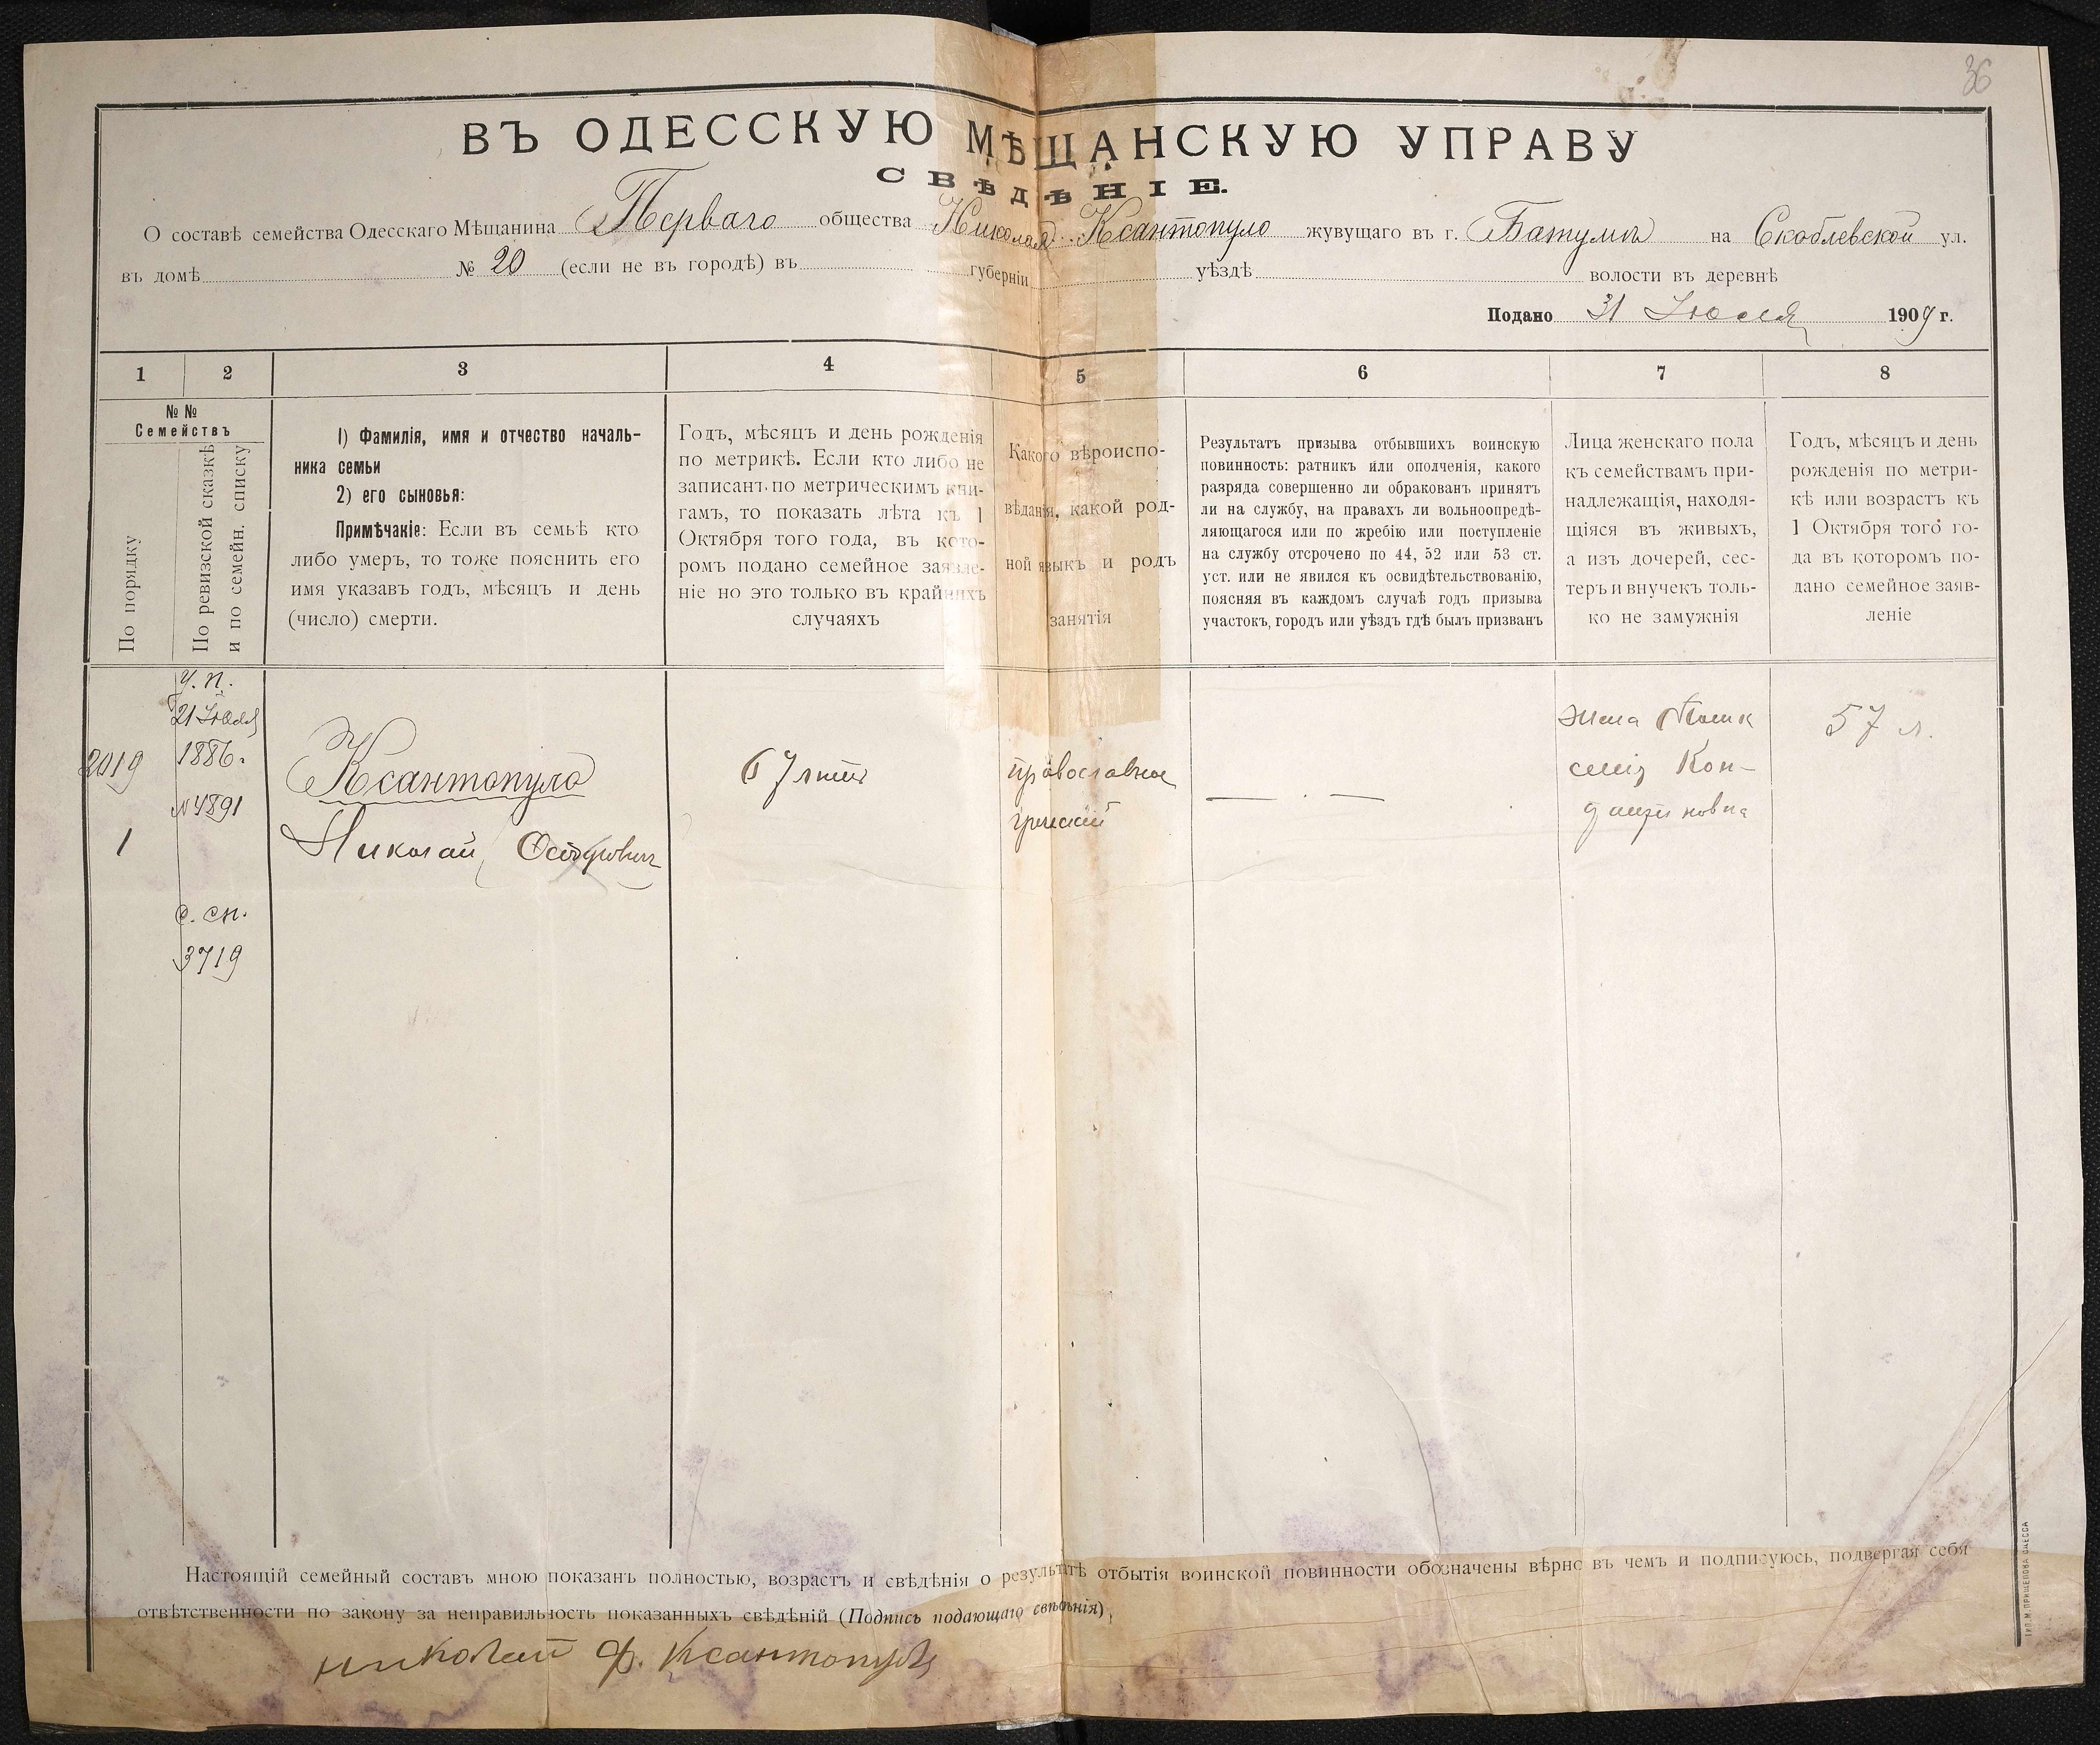 36
ВЪ ОДЕССКУЮ МѢЩАНСКУЮ УПРАВУ
СВѢДѢНІЕ.
О составѣ семейства Одесскаго Мѣщанина Перваго общества Николая Ксантопуло жувущаго въ г. Батумѣ на Скоблевской ул.
въ домѣ № 20 (если не въ городѣ) въ губерніи уѣздѣ волости въ деревнѣ
Подано 31 Іюля 1909 г.
1 2 3 4 5 6 7 8
№ №
Семействъ
По порядку
По ревизской сказкѣ
и по семейн. списку
1) Фамилія, имя и отчество началь-
ника семьи
2) его сыновья:
Примѣчаніе: Если въ семьѣ кто
либо умеръ, то тоже пояснить его
имя указавъ годъ, мѣсяцъ и день
(число) смерти.
Годъ, мѣсяцъ и день рожденія
по метрикѣ. Если кто либо не
записанъ по метрическимъ кни-
гамъ, то показать лѣта къ 1
Октября того года, въ кото-
ромъ подано семейное заявле-
ніе но это только въ крайнихъ
случаяхъ
Какого вѣроиспо-
вѣданія, какой род-
ной языкъ и родъ
занятія
Результатъ призыва отбывшихъ воинскую
повинность: ратникъ или ополченія, какого
разряда совершенно ли обракованъ принятъ
ли на службу, на правахъ ли вольноопредѣ-
ляющагося или по жребію или поступленіе
на службу отсрочено по 44, 52 или 53 ст.
уст. или не явился къ освидѣтельствованію,
поясняя въ каждомъ случаѣ годъ призыва
участокъ, городъ или уѣздъ гдѣ былъ призванъ
Лица женскаго пола
къ семействамъ при-
надлежащія, находя-
щіяся въ живыхъ,
а изъ дочерей, сес-
теръ и внучекъ толь-
ко не замужнія
Годъ, мѣсяцъ и день
рожденія по метри-
кѣ или возрастъ къ
1 Октября того го-
да въ которомъ по-
дано семейное заяв-
леніе
У. п.
21 Іюля
2019 1886.
№ 4891
1
с. сп.
3719
Ксантопуло
Николай
67 лѣтъ
православное
греческій
— . —
жена
Кон-
57 л.
Настоящій семейный составъ мною показанъ полностью, возрастъ и свѣдѣнія о результатѣ отбытія воинской повинности обозначены вѣрно въ чемъ и подписуюсь, подвергая себя
отвѣтственности по закону за неправильность показанныхъ свѣдѣній (Подпись подающаго свѣдѣнія)
николай Ф. Ксантопуло
ТИП. М. ПРИЩЕПОВА ОДЕССА